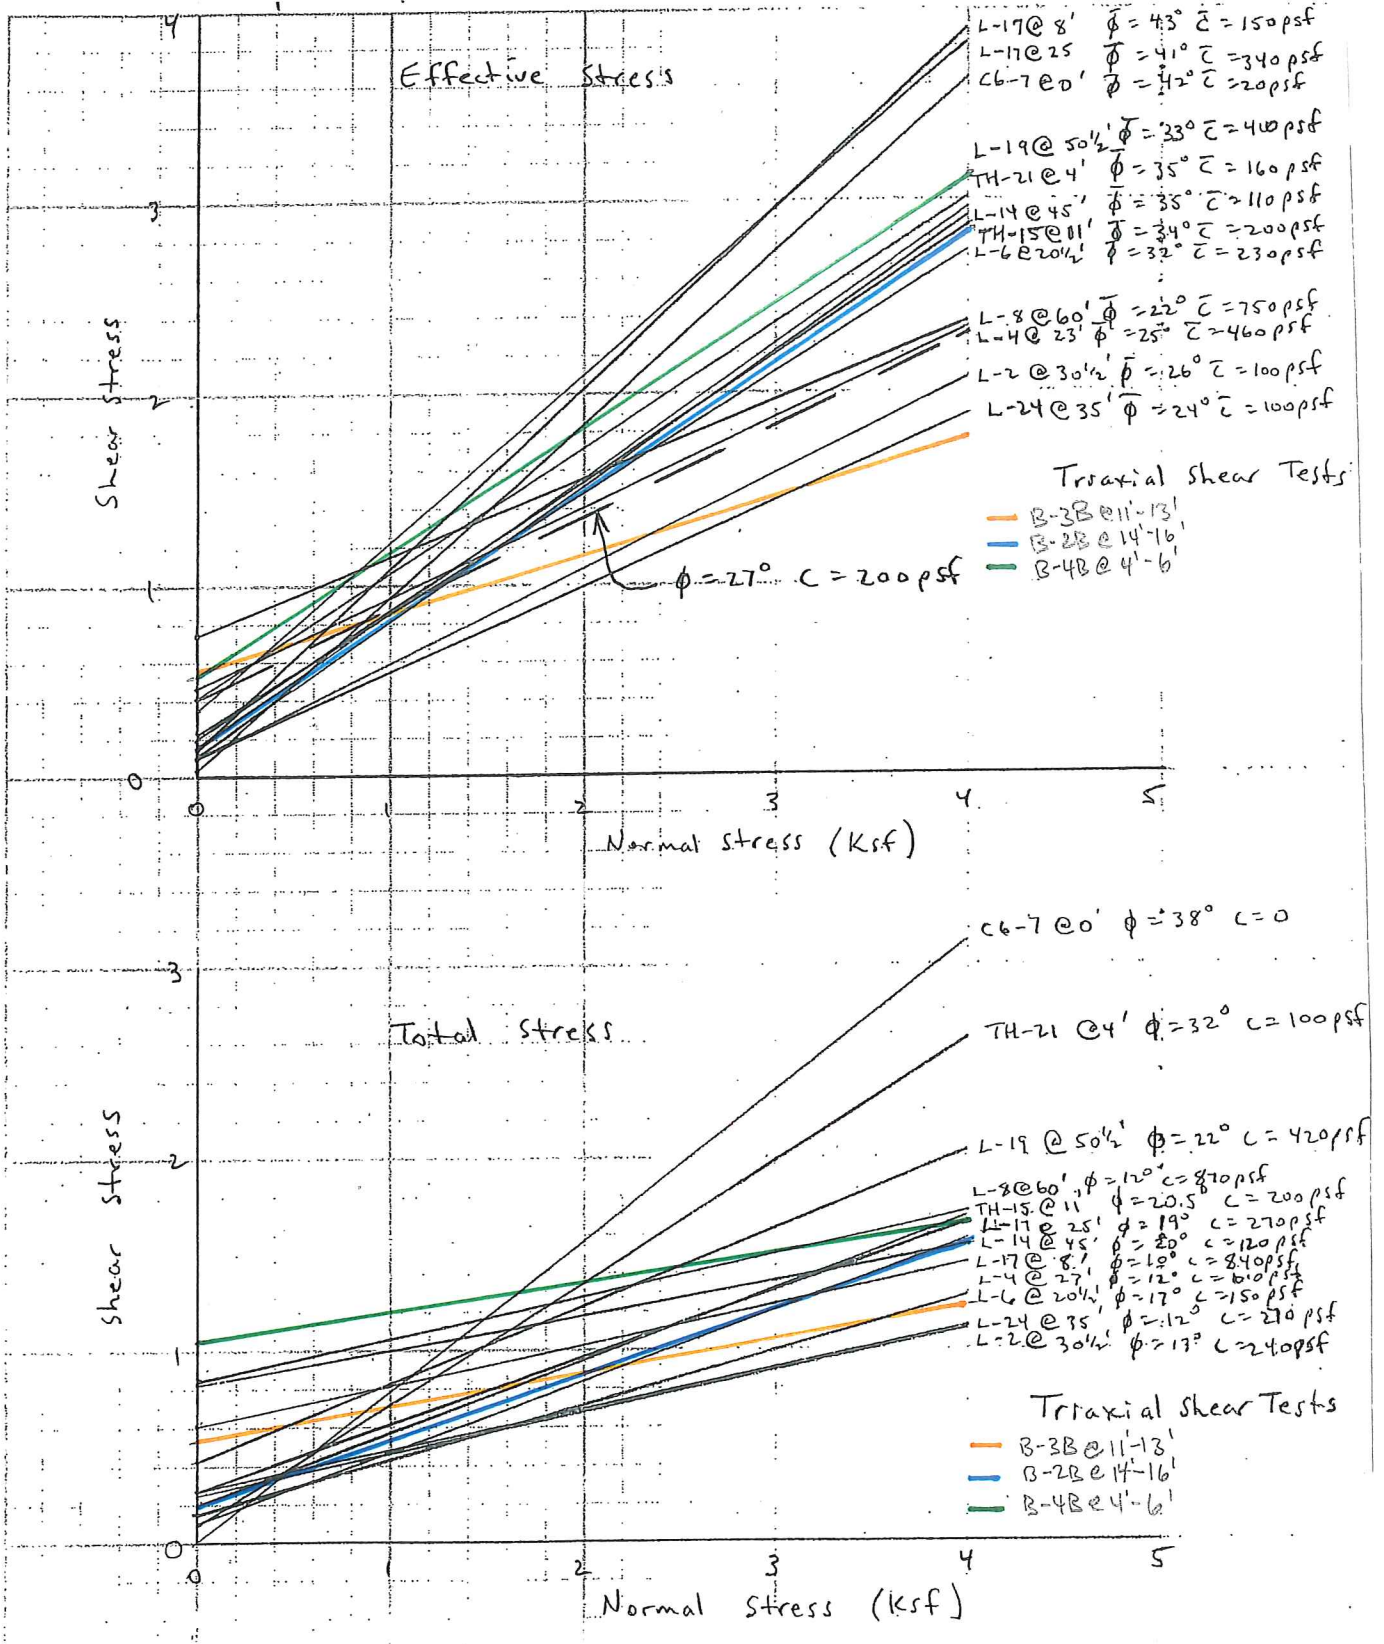 4
L-17@ 8' φ̄ = 43° c̄ = 150psf
L-17@ 25 φ̄ = 41° c̄ = 340psf
Effective Stress
C6-7@0' φ̄ = 42° c̄ = 20psf
L-19@ 50½' φ̄ = 33° c̄ = 400psf
TH-21@4' φ̄ = 35° c̄ = 160psf
3
L-14@45' φ̄ = 35° c̄ = 110psf
TH-15@11' φ̄ = 34° c̄ = 200psf
L-6@20½' φ̄ = 32° c̄ = 230psf
L-8@60' φ̄ = 22° c̄ = 750psf
L-4@ 23' φ̄ = 25° c̄ = 460psf
L-2 @ 30½' φ̄ = 26° c̄ = 100psf
2
L-24@35' φ̄ = 24° c̄ = 100psf
Shear Stress
Triaxial Shear Tests
B-3B@11'-13'
B-2B@14'-16'
B-4B@4'-6'
1
φ = 27° c = 200psf
0
0 1 2 3 4 5
Normal Stress (Ksf)
C6-7@0' φ = 38° c = 0
3
Total Stress
TH-21 @4' φ = 32° c = 100psf
L-19 @ 50½' φ = 22° c = 420psf
2
L-8@60' φ = 12° c = 870psf
TH-15@11' φ = 20.5° c = 200psf
L-17@ 25' φ = 19° c = 270psf
L-14@45' φ = 20° c = 120psf
L-17@ 8' φ = 10° c = 840psf
L-4@ 27' φ = 12° c = 610psf
L-6@ 20½' φ = 17° c = 150psf
L-24@ 35' φ = 12° c = 270psf
L-2@ 30½' φ = 13° c = 240psf
Shear Stress
1
Triaxial Shear Tests
B-3B@11'-13'
B-2B@14'-16'
B-4B@4'-6'
0
0 1 2 3 4 5
Normal Stress (Ksf)